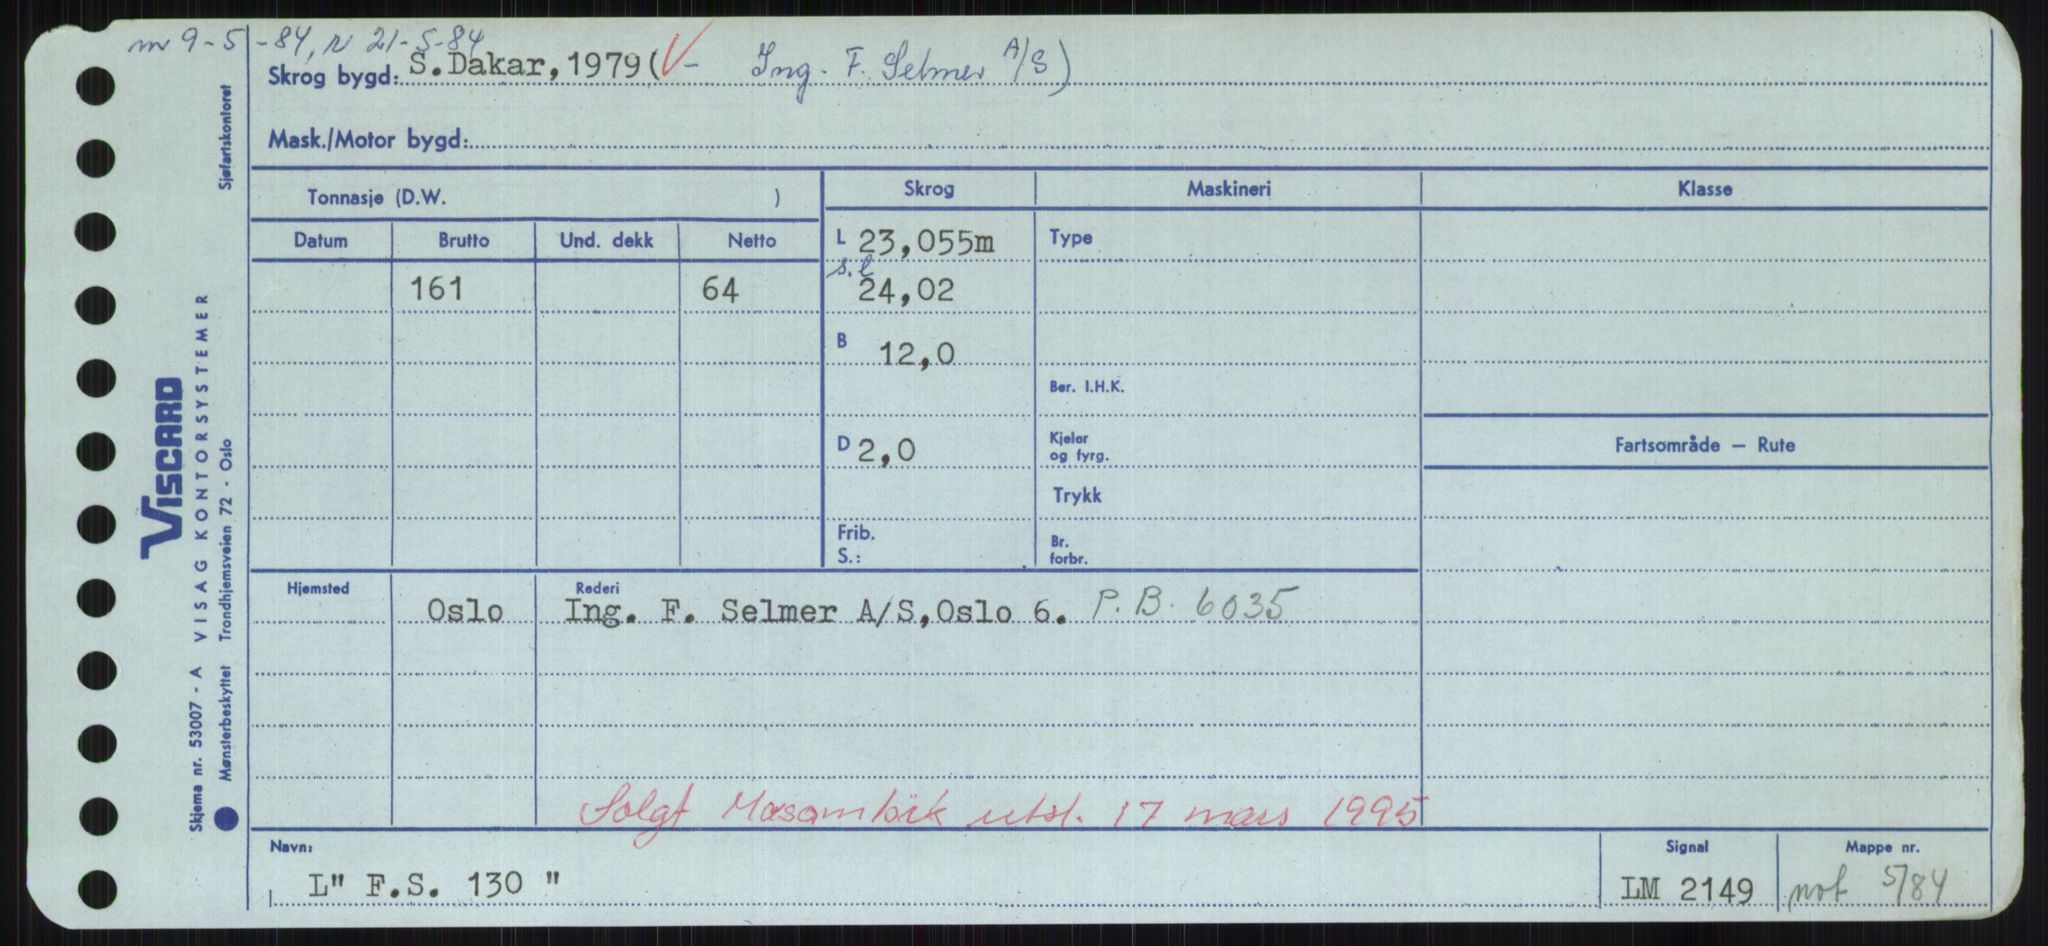 mr 9-5-84, N 21-5-84
Skrog bygd: S.Dakar, 1979 (V - Ing. F. Selmer A/S)
Mask./Motor bygd:
Tonnasje (D.W. )
Skrog
Maskineri
Klasse
Datum
Brutto
Und. dekk
Netto
L 23,055m
Type
161
64
s.l
24,02
B 12,0
Ber. I.H.K.
D 2,0
Kjeler
og fyrg.
Fartsområde — Rute
Trykk
Frib.
S.:
Br.
forbr.
Hjemsted
Rederi
Oslo
Ing. F. Selmer A/S, Oslo 6. P.B. 6035
Solgt Mosambik utsl. 17 mars 1995
Navn:
Signal
Mappe nr.
L" F.S. 130 "
LM 2149
not 5/84
Sjøfartskontoret
VISCARD
VISAG KONTORSYSTEMER
Trondhjemsveien 72 - Oslo
Skjema nr. 53007 - A
Mønsterbeskyttet